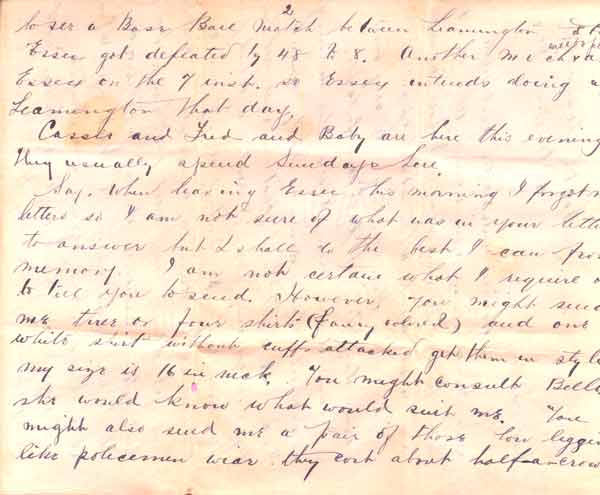 2
to see a Base Ball match between Leamington &
Essex got defeated by 48 to 8. Another
Essex on the 7 inst. so Essex intends doing
Leamington that day.
Casse and Fred and Baby are here this evening
They usually spend Sundays here.
Say. When leaving Essex this morning I forgot
letters so I am not sure of what was in your
to answer but I shall do the best I can from
memory. I am not certain what I require
to tell you to send. However, you might send
me three or four shirts (fancy colored) and one
white shirt without cuffs attacked get them in
my size is 16 in neck. You might consult
she would know what would suit me. You
might also send me a pair of those low
like policemen wear they cost about half-a-crow